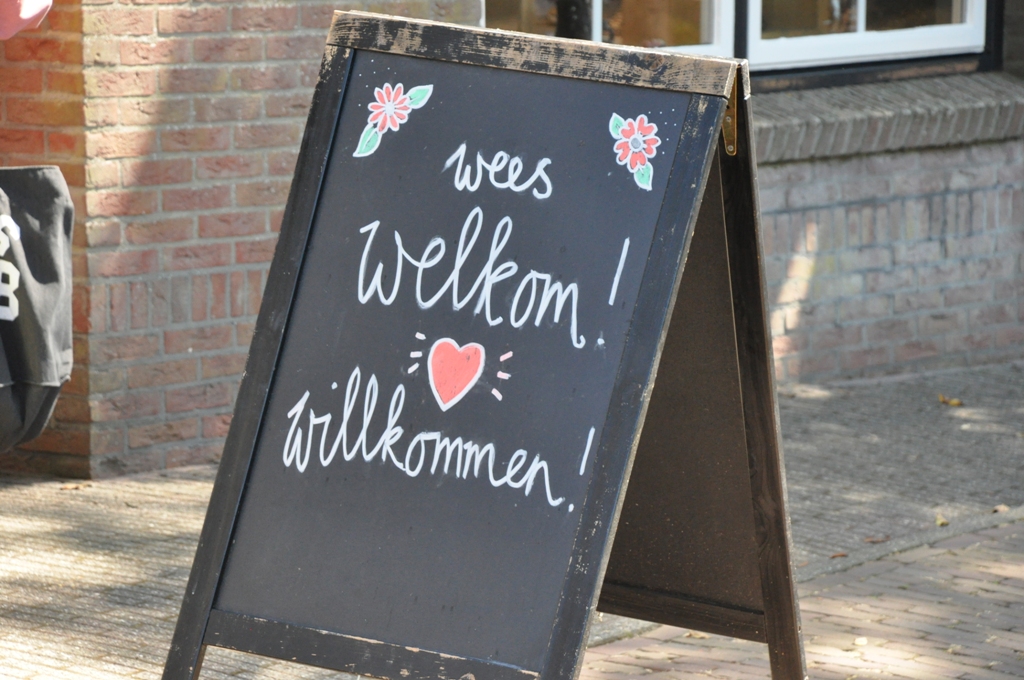 wees
welkom!
willkommen!